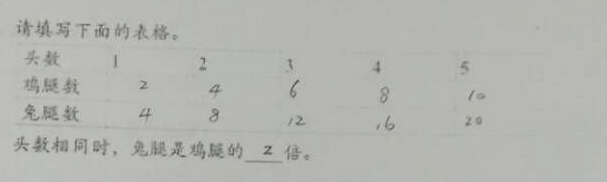 请填写下面的表格。
头数 1 2 3 4 5
鸡腿数 2 4 6 8 10
兔腿数 4 8 12 16 20
头数相同时，兔腿是鸡腿的 2 倍。